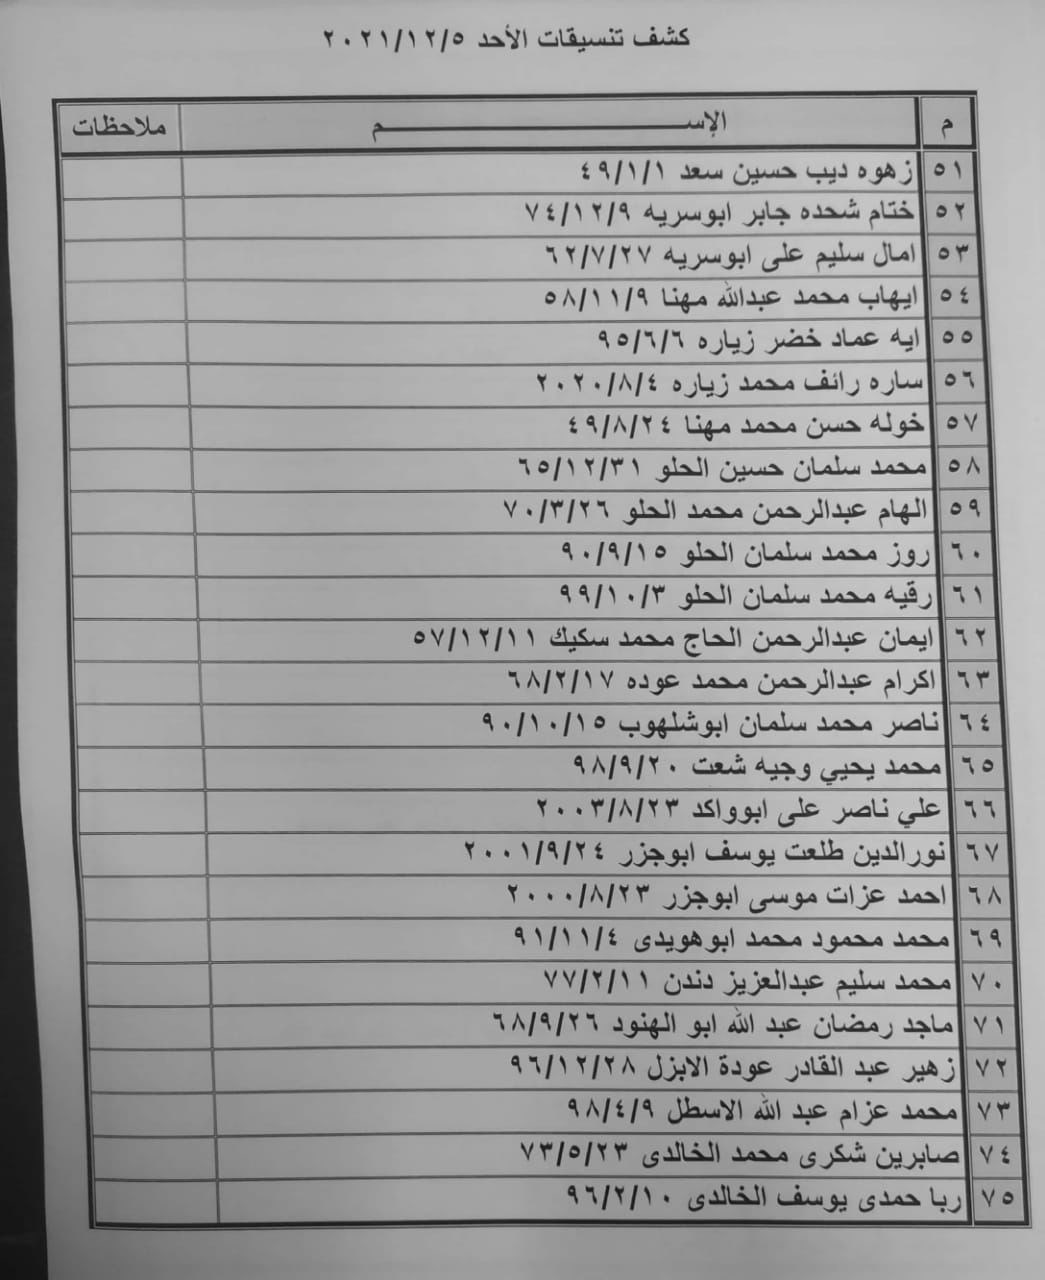 كشف تنسيقات الأحد ٢٠٢١/١٢/٥
م الإســـــــــــــــــــــم ملاحظات
٥١ زهوه ديب حسين سعد ٤٩/١/١
٥٢ ختام شحده جابر ابوسريه ٧٤/١٢/٩
٥٣ امال سليم على ابوسريه ٦٢/٧/٢٧
٥٤ ايهاب محمد عبدالله مهنا ٥٨/١١/٩
٥٥ ايه عماد خضر زياره ٩٥/٦/٦
٥٦ ساره رائف محمد زياره ٢٠٢٠/٨/٤
٥٧ خوله حسن محمد مهنا ٤٩/٨/٢٤
٥٨ محمد سلمان حسين الحلو ٦٥/١٢/٣١
٥٩ الهام عبدالرحمن محمد الحلو ٧٠/٣/٢٦
٦٠ روز محمد سلمان الحلو ٩٠/٩/١٥
٦١ رقيه محمد سلمان الحلو ٩٩/١٠/٣
٦٢ ايمان عبدالرحمن الحاج محمد سكيك ٥٧/١٢/١١
٦٣ اكرام عبدالرحمن محمد عوده ٦٨/٢/١٧
٦٤ ناصر محمد سلمان ابوشلهوب ٩٠/١٠/١٥
٦٥ محمد يحيي وجيه شعت ٩٨/٩/٢٠
٦٦ علي ناصر على ابوواكد ٢٠٠٣/٨/٢٣
٦٧ نورالدين طلعت يوسف ابوجزر ٢٠٠١/٩/٢٤
٦٨ احمد عزات موسى ابوجزر ٢٠٠٠/٨/٢٣
٦٩ محمد محمود محمد ابوهويدى ٩١/١١/٤
٧٠ محمد سليم عبدالعزيز دندن ٧٧/٢/١١
٧١ ماجد رمضان عبد الله ابو الهنود ٦٨/٩/٢٦
٧٢ زهير عبد القادر عودة الابزل ٩٦/١٢/٢٨
٧٣ محمد عزام عبد الله الاسطل ٩٨/٤/٩
٧٤ صابرين شكرى محمد الخالدى ٧٣/٥/٢٣
٧٥ ربا حمدى يوسف الخالدى ٩٦/٢/١٠